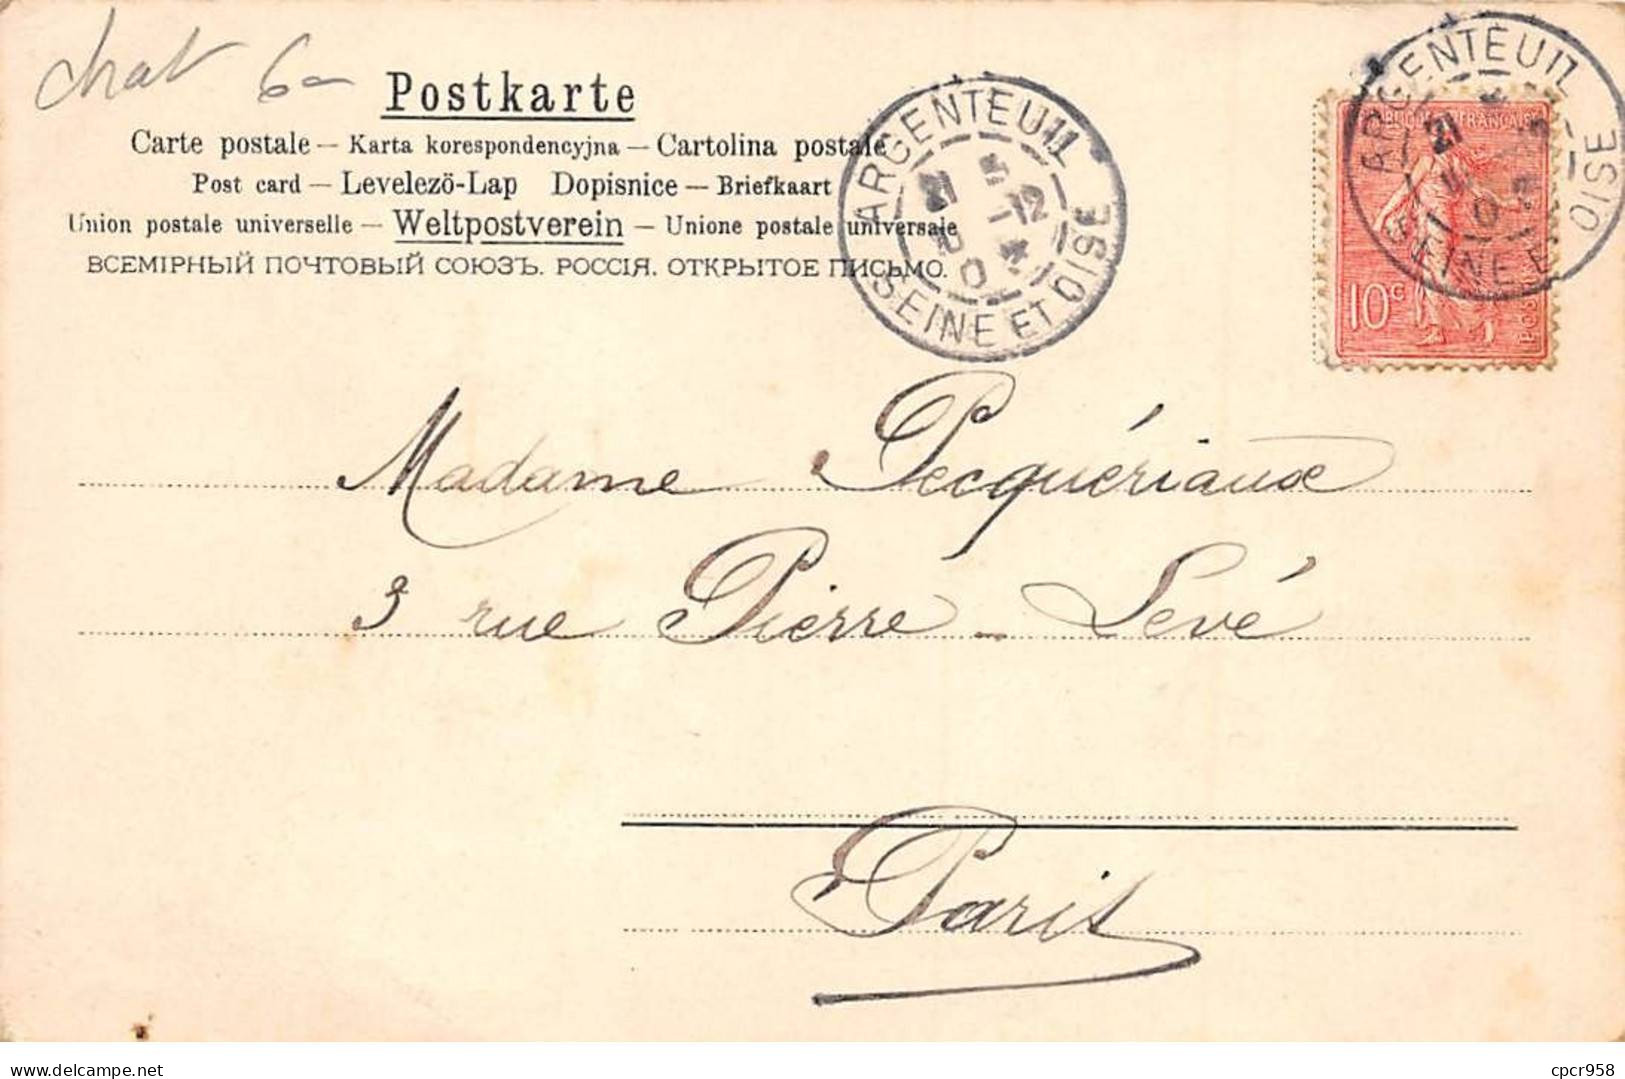 chat 6-
Postkarte
Carte postale — Karta korespondencyjna — Cartolina postale
Post card — Levelezö-Lap Dopisnice — Briefkaart
Union postale universelle — Weltpostverein — Unione postale universale
ВСЕМІРНЫЙ ПОЧТОВЫЙ СОЮЗЪ. РОССІЯ. ОТКРЫТОЕ ПИСЬМО.
ARGENTEUIL
SEINE ET OISE
ARGENTEUIL
SEINE E OISE
21
10c
Madame Pecquériaux
3 rue Pierre-Levé
Paris
website: delcampe.net
cpcr958